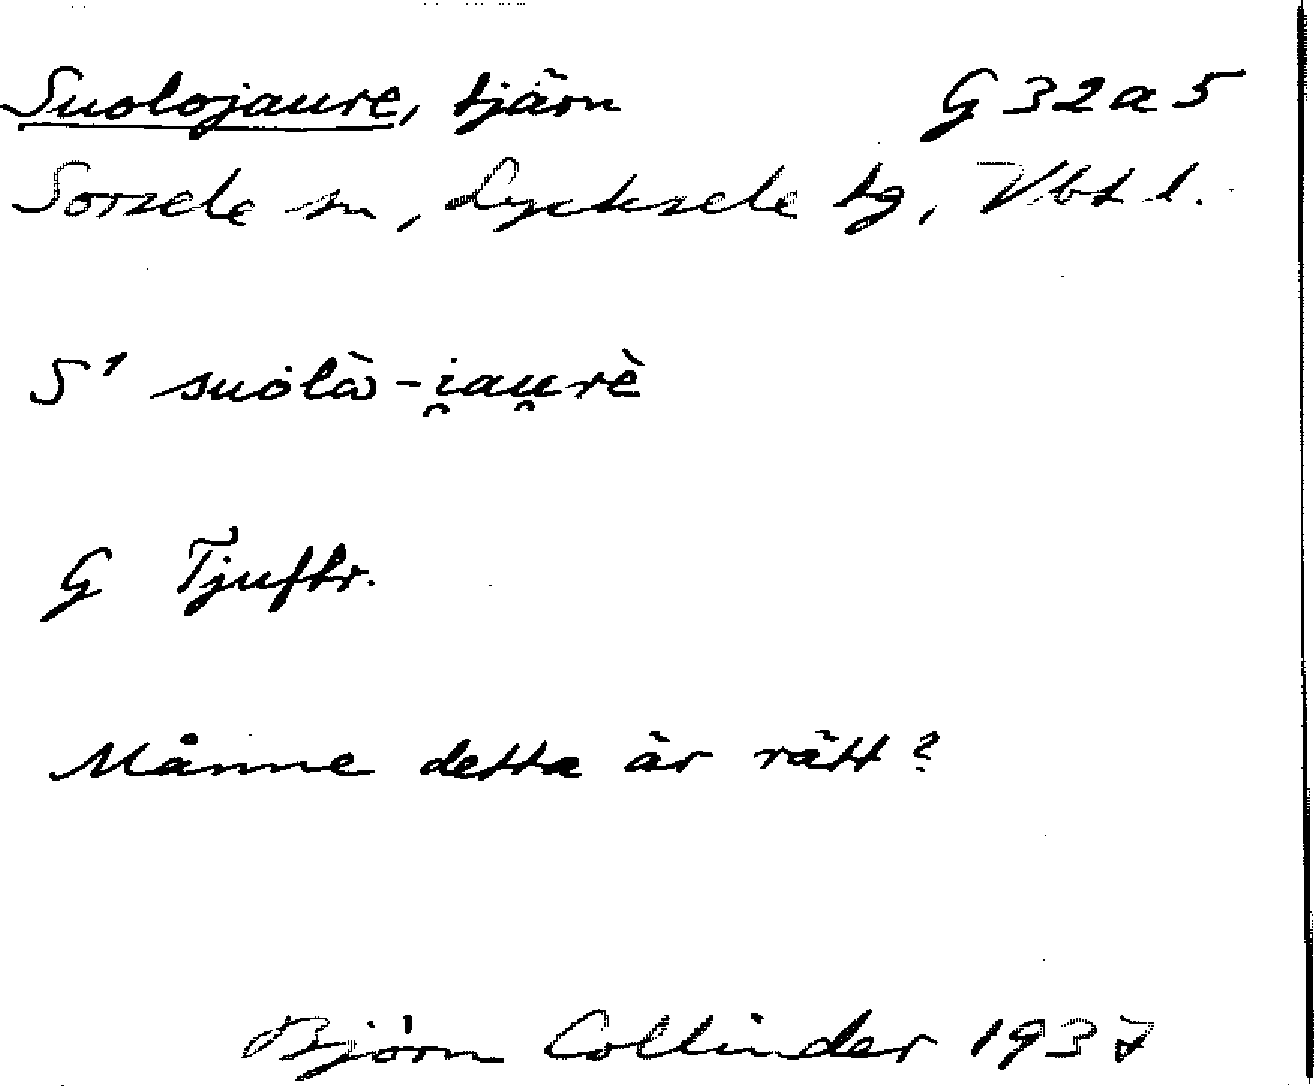 Suolojaure, tjärn G 32 a 5
Sorsele sn, Lycksele tg, Vbt l.
S' suolò̀-i̯au̯rè
G Tjuftr.
Månne detta är rätt?
Björn Collinder 1937